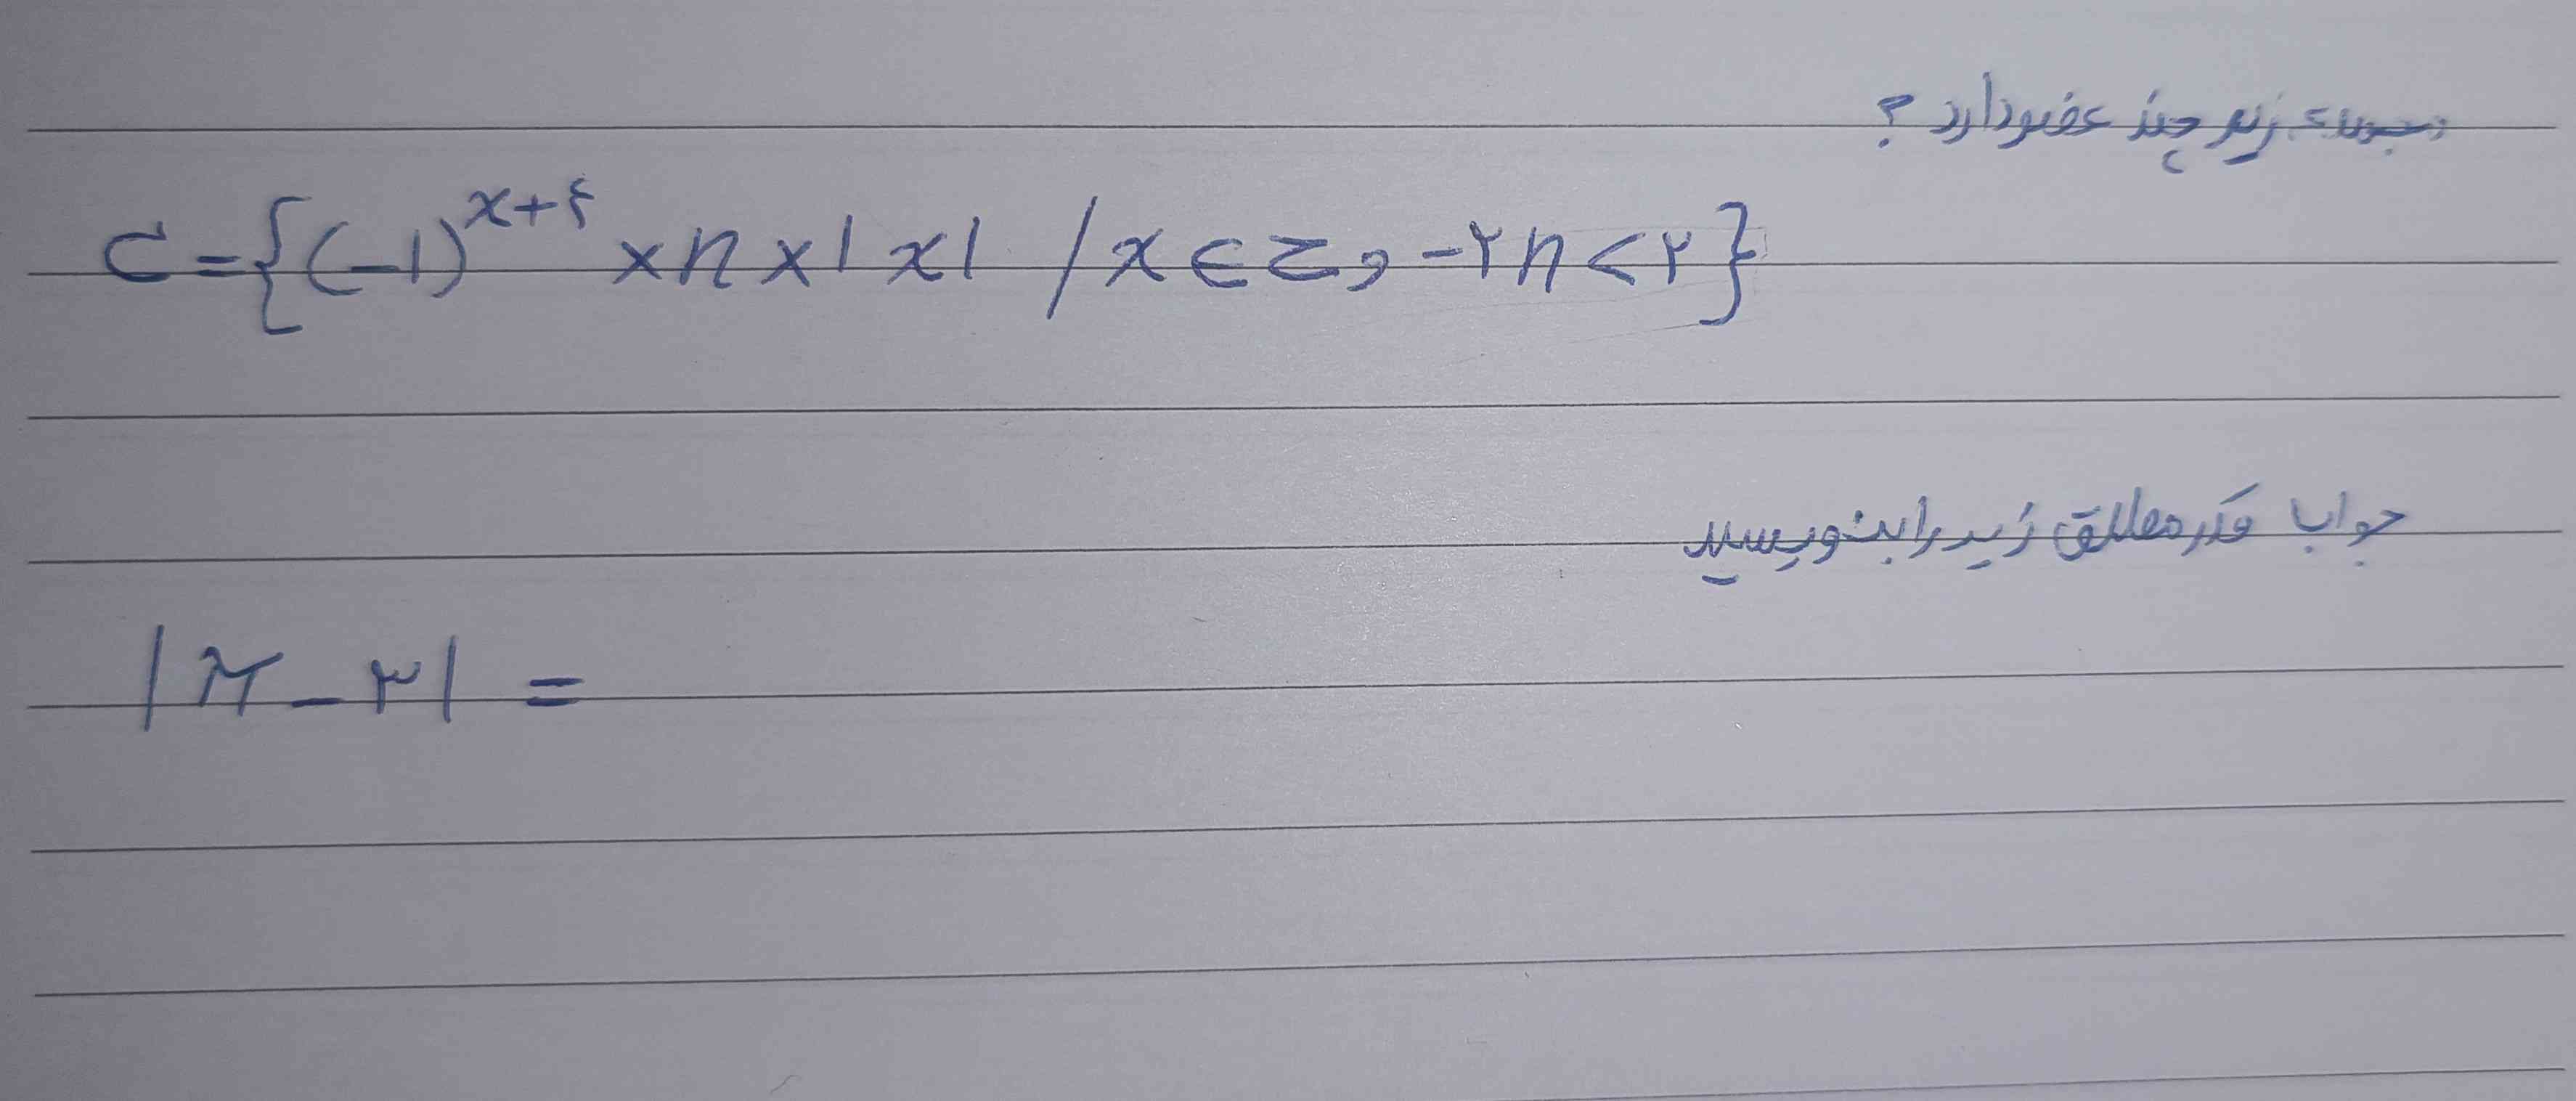 مجموعه زیر چند عضو دارد ؟
C={(-1)^x+۴ ×n×|x| / x∈Z و -۲n<۲}
جواب قدر مطلق زیر را بنویسید
|π-۳| =